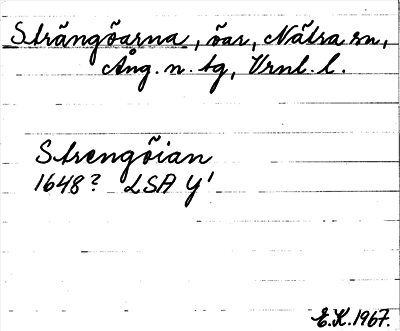 Strängöarna, öar, Nätra sn,
Ång. n. tg, Vrnl. l.
Strengöian
1648? LSA Y'
E.K. 1967.